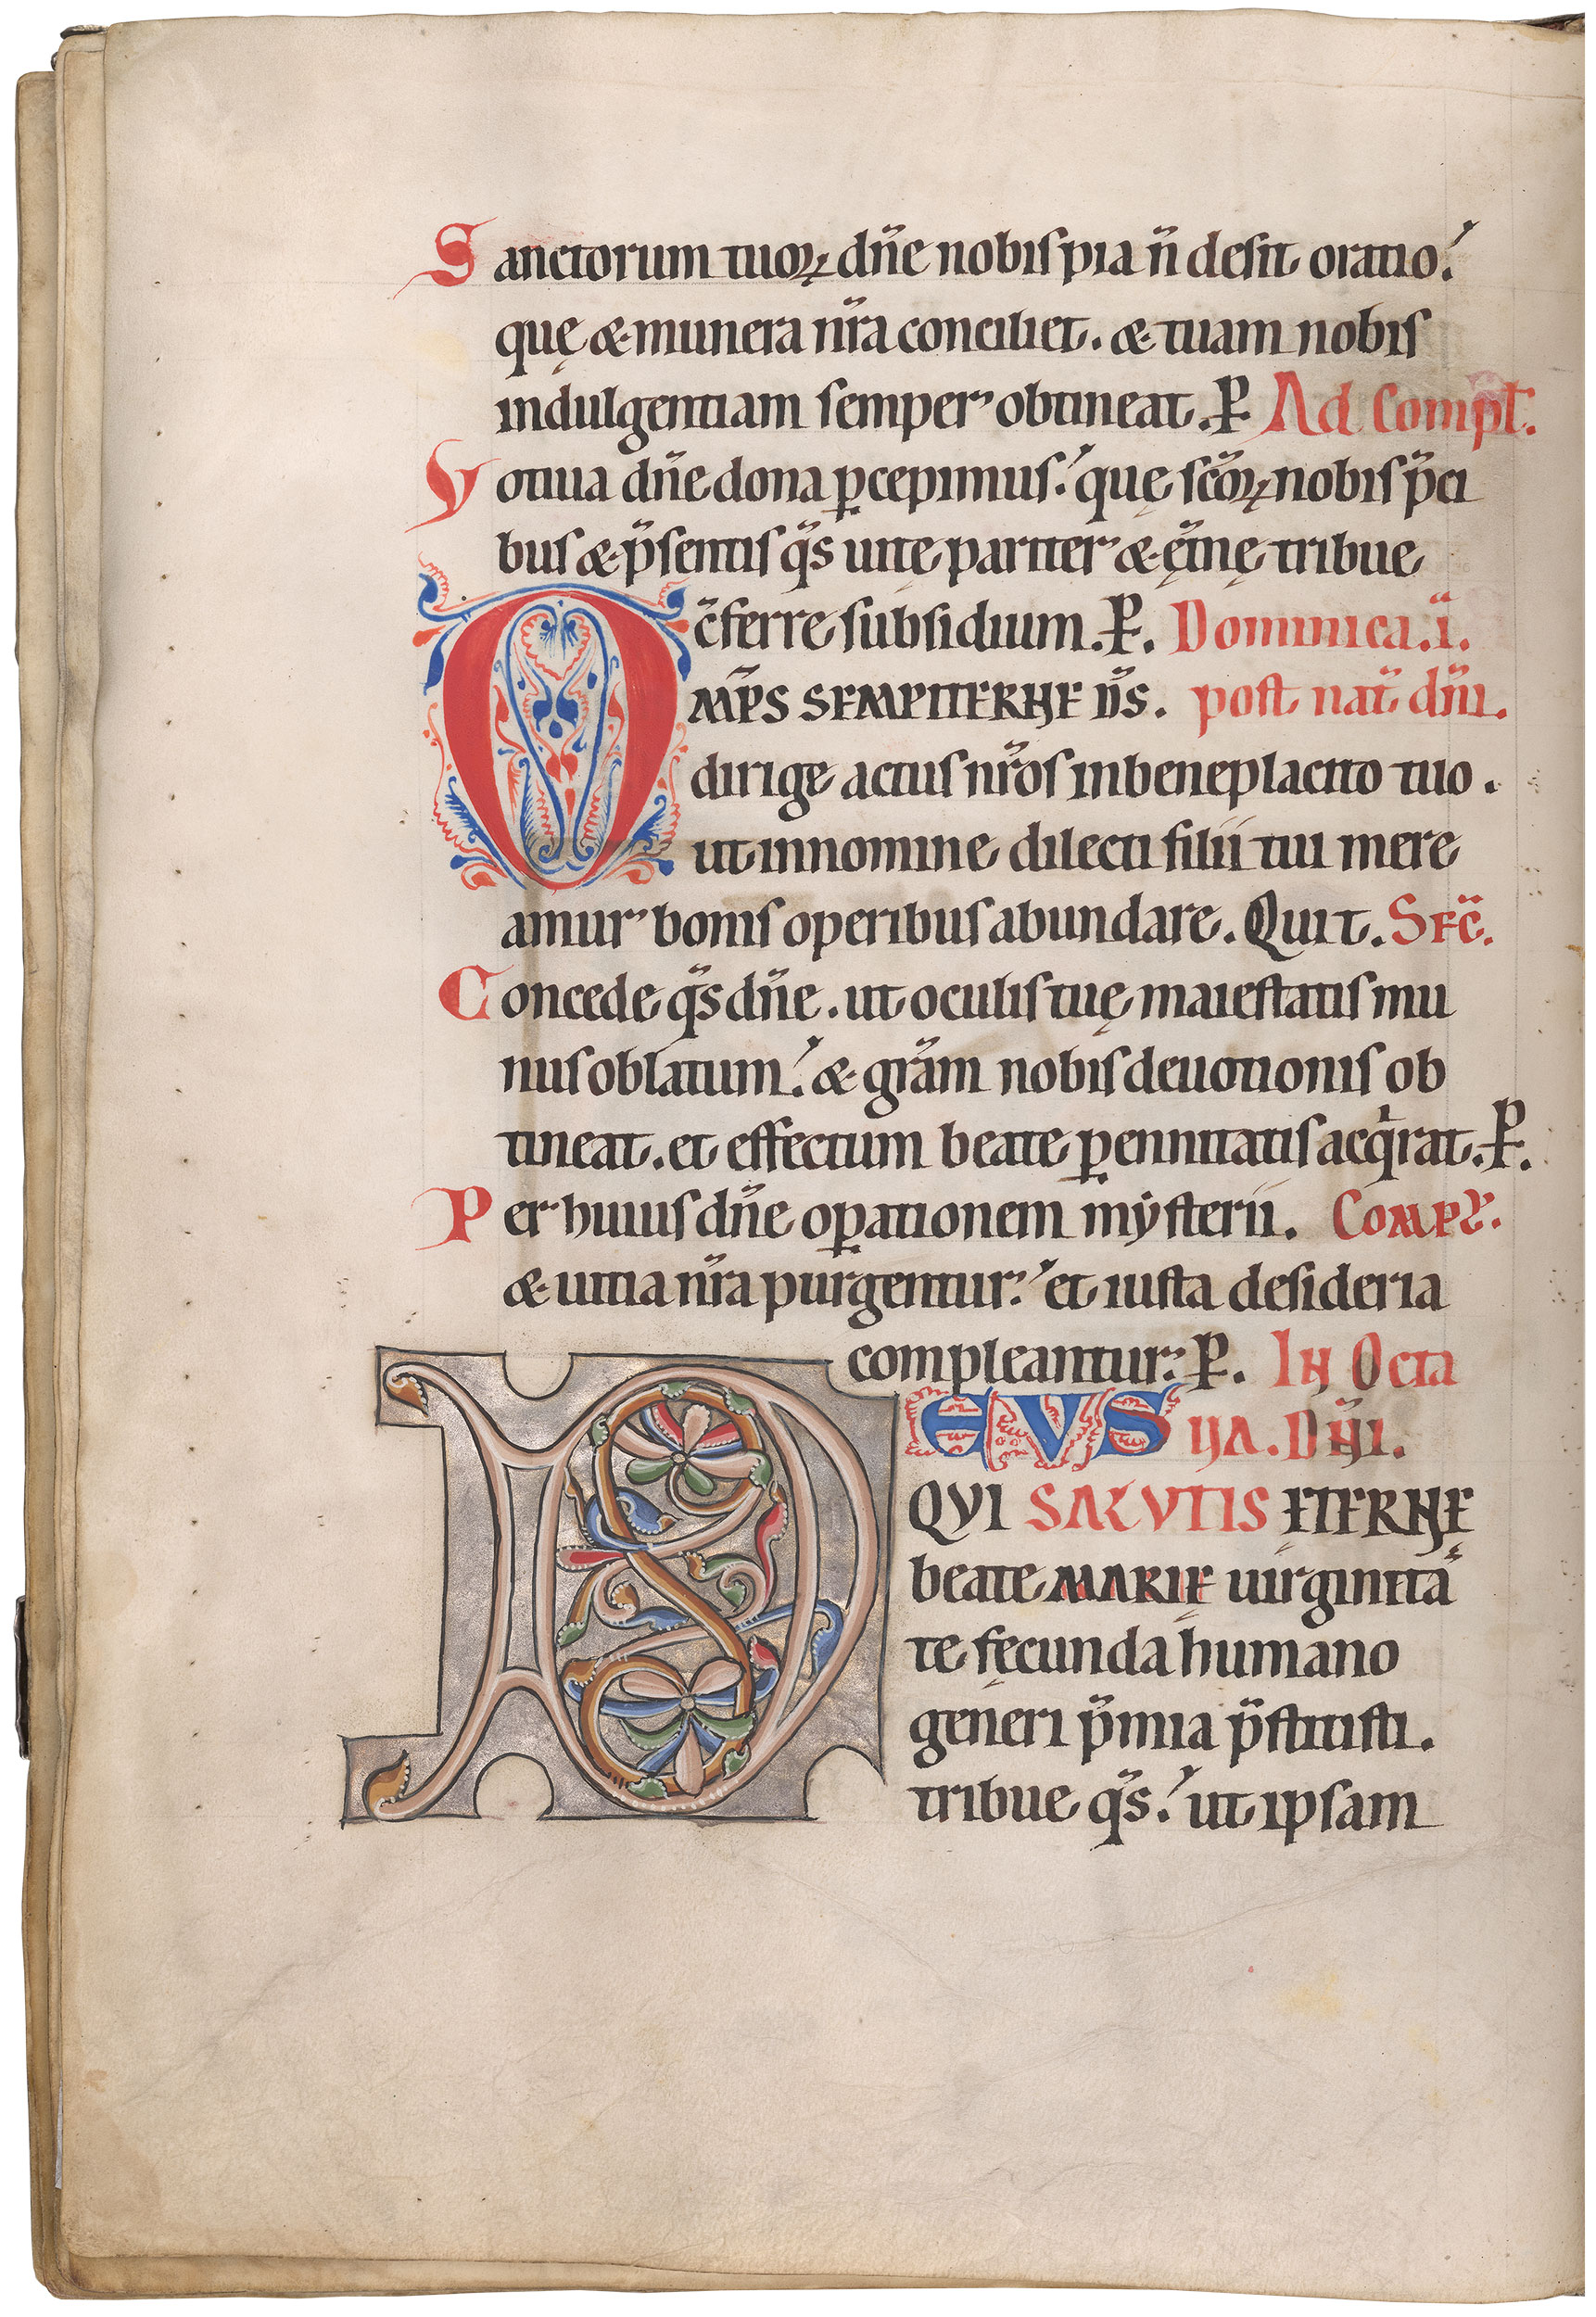 Sanctorum tuoꝝ dn̄e nobis pia n̄ desit oratio.
quę & munera nr̄a conciliet. & tuam nobis
indulgentiam semper obtineat. P̄ Ad Compł.
Votiua dn̄e dona ꝑcepimus. quę sc̄oꝝ nobis p̄ci
bus & p̄sentis q̄s uitę pariter & ęt̄nę tribue
c̄ferre subsidium. P̄. Dominica .i.
OMP̄S SEMPITERNE D̄S. post nat̄ dn̄i.
dirige actus nr̄os in beneplacito tuo.
ut in nomine dilecti filii tui mere
amur bonis operibus abundare. Qui t. SEC̄.
Concede q̄s dn̄e. ut oculis tuę maiestatis mu
nus oblatum. & gr̄am nobis deuotionis ob
tineat. et effectum beate ꝑennitatis acq̍rat. P̄.
Per huius dn̄e oꝑationem mẏsterii. COMPL̄.
& uitia nr̄a purgentur. et iusta desideria
compleantur. P̄. IN Octa
DEVS UA. DN̄I.
QVI SALVTIS ĘTERNĘ
beate MARIĘ uirginita
te fęcunda humano
generi p̄mia p̄stitisti.
tribue q̄s. ut ipsam